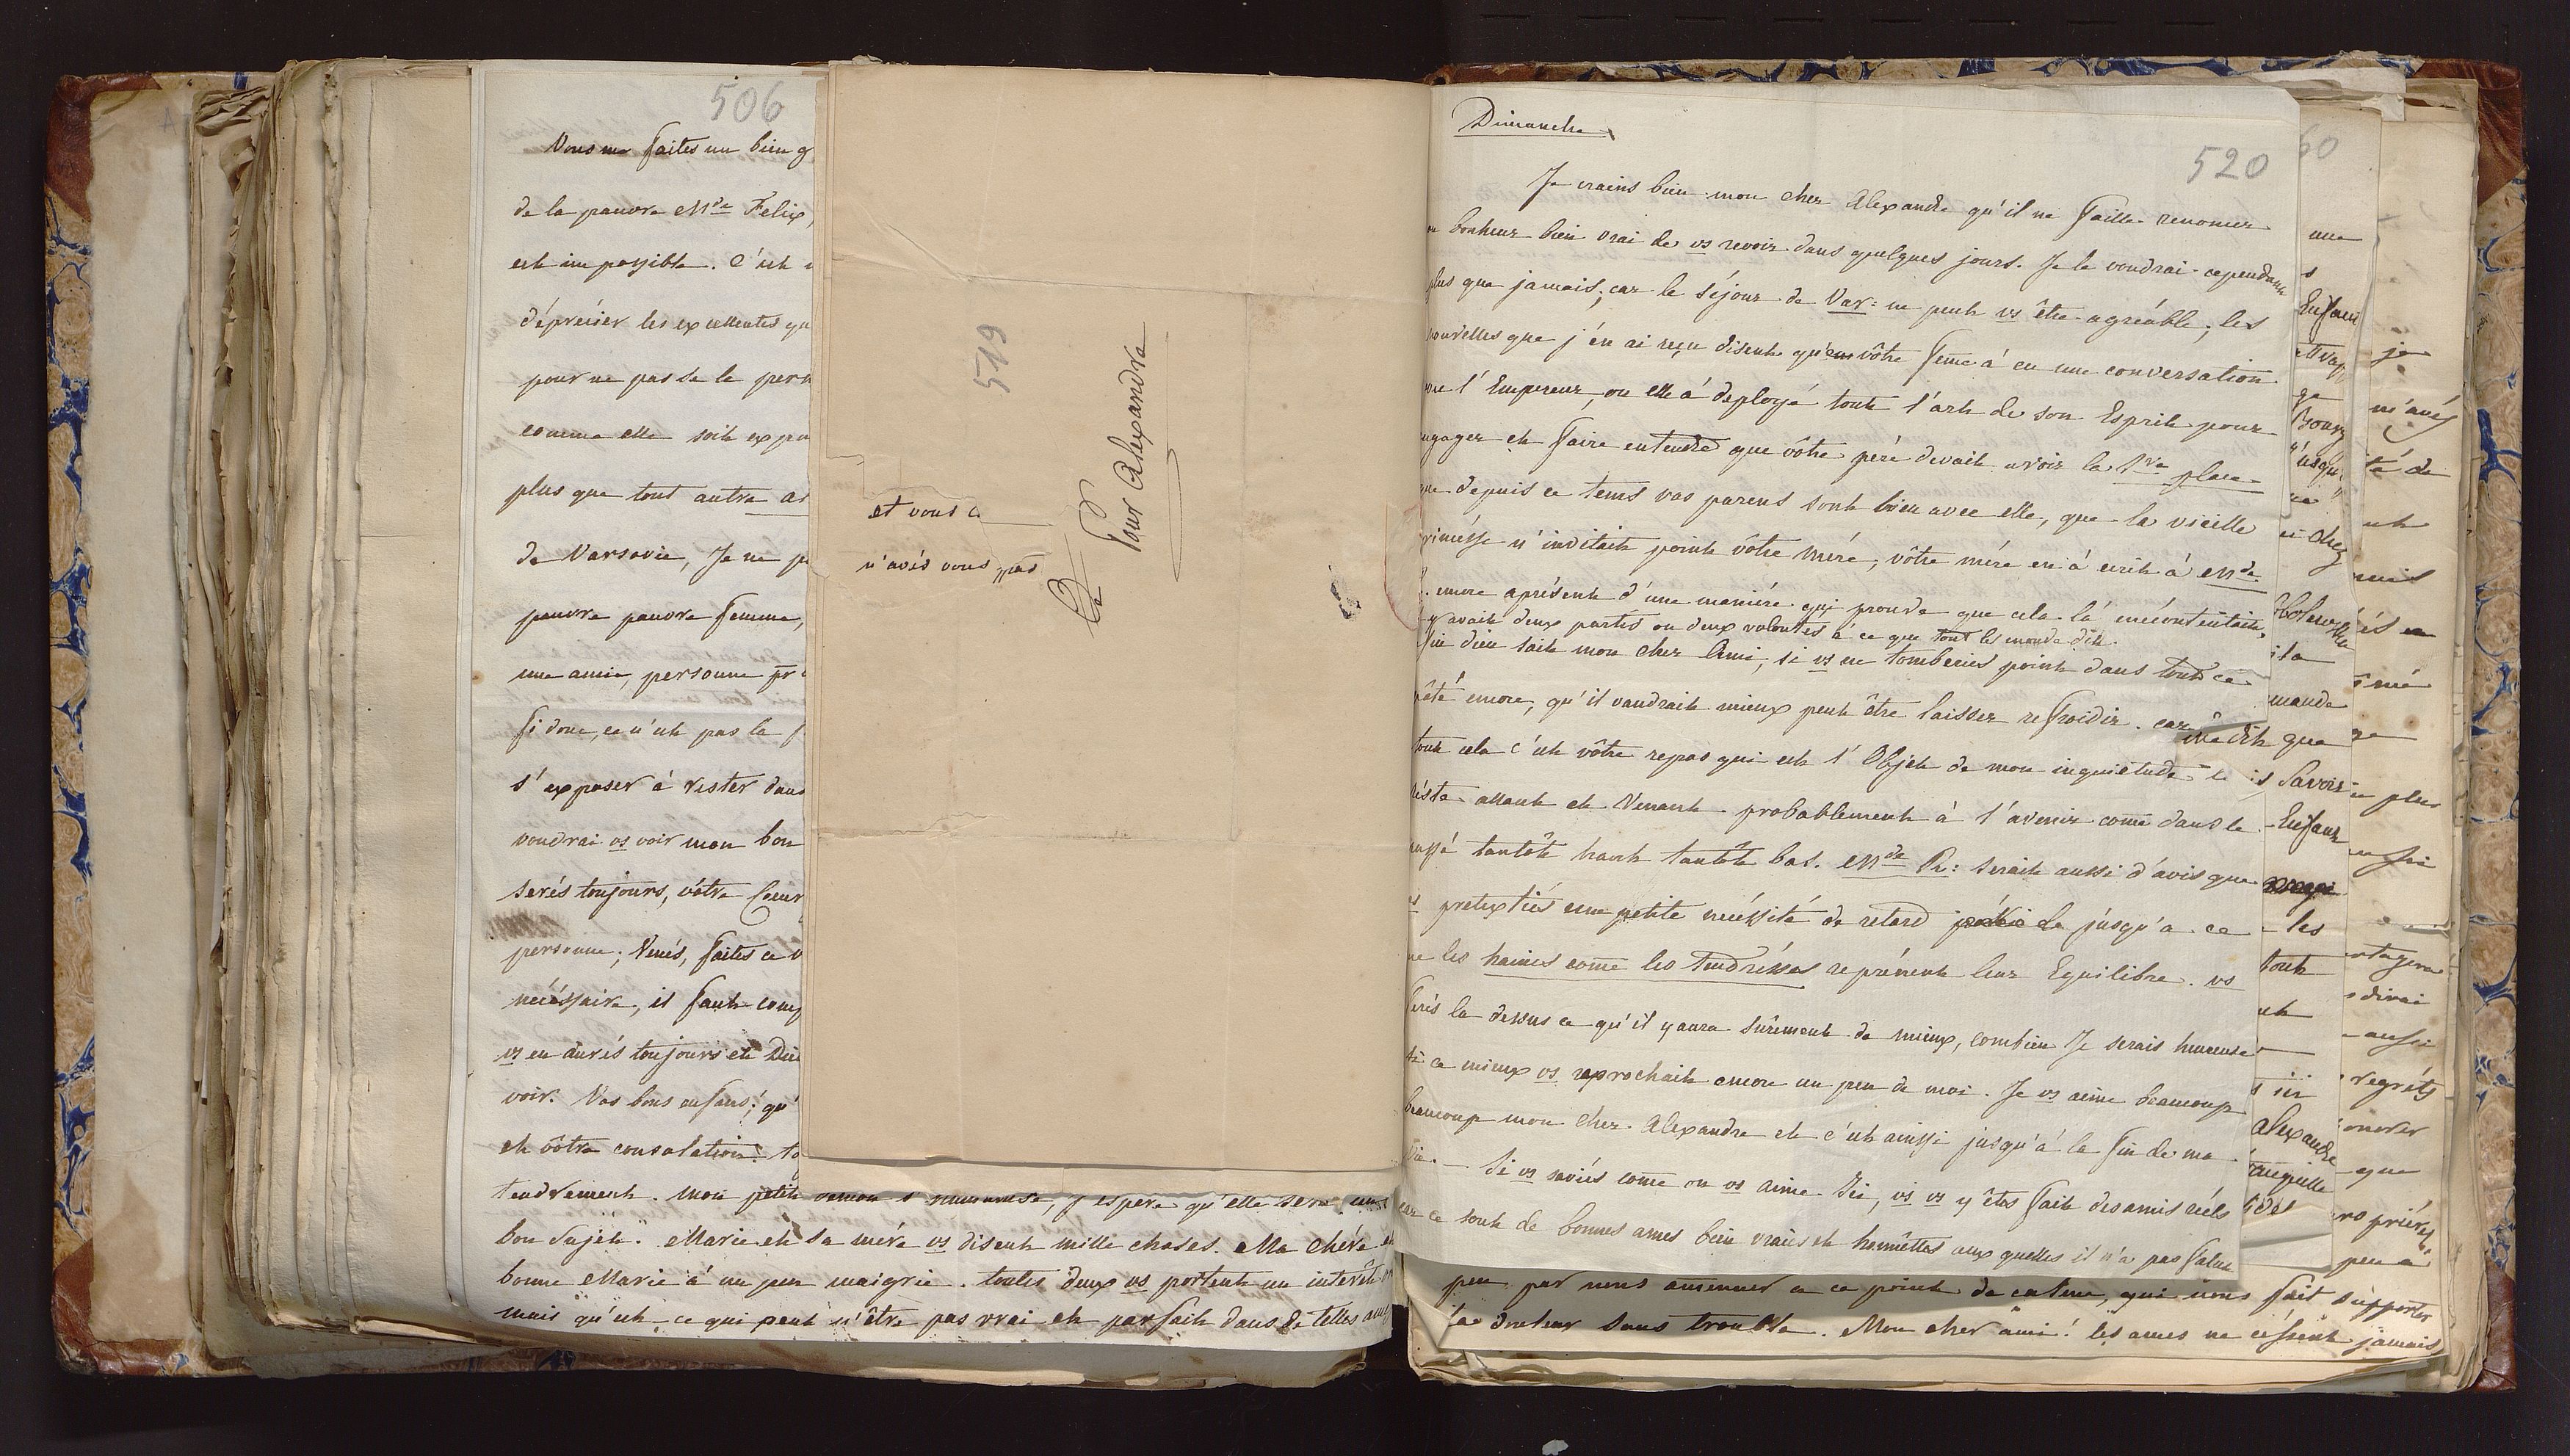 506
Vous me faites un bien g
de la pauvre Mde Felix,
est impossible. C'est
dépreçier les excellentes qu
pour ne pas se le perm
comme elle soit expo
plus que tout autre a
de Varsovie, Je ne p
pauvre pauvre femme,
une amie, personne pr
si donc, ce n'est pas la f
s'exposer à rester dans
voudrai vs voir mon bon
serés toujours, vôtre Coeur
personne; Venés, faites ce v
nécéssaire, il faut comp
vs en aurés toujours et Die
voir. Vos bons enfans, qu'
et vôtre consolation. to
tendrement. Mon petit j'espere qu'elle sera une
bon Sujèt. Marie et sa mére vs disent mille choses. Ma Chére et
bonne Marie à un peu maigrie. toutes deux vs portent un interêt
mais qu'est-ce qui peut n'être pas vrai et parfait dans de telles am
519
et vous a
n'avés vous pas
Pour Alexandre
Dimanche
520
Je crains bien mon cher Alexandre qu'il ne faille renoncer
au bonheur bien vrai de vs revoir dans quelques jours. Je le voudrai cependant
plus que jamais, car le séjour de Var: ne peut vs être agréable, les
nouvelles que j'en ai reçu disent qu'en vôtre feme à eu une conversation
avec l'Empereur, ou elle à deployé tout l'art de son Esprit pour
engager et faire entendre que vôtre pére devait avoir la 1re place
que depuis ce tems vos parens sont bien avec elle, que la vieille
princésse n'invitait point vôtre mére, vôtre mére en à ecrit à Mde
encore aprésent d'une maniére qui prouve que cela là mécontentait,
y avait deux partis ou deux volontés à ce que tout le monde dit.
dieu sait mon cher Ami, si vs ne tomberies point dans tout ce
pâté encore, qu'il vaudrait mieux peut être laisser refroidir. car
tout cela c'est vôtre repos qui est l'Objèt de mon inquiétude le
réste allant et Venant probablement à l'avenir come dans le
passé tantôt haut tantôt bas. Mde R: serait aussi d'avis que
vs pretextiés une petite nécéssité de retard jusqu'à ce
que les haines come les tendrésses reprénent leur Equilibre. vs
ferés la dessus ce qu'il y aura surêment de mieux, combien Je serais heureuse
si ce mieux vs raprochait encore un peu de moi. Je vs aime beaucoup
beaucoup mon cher Alexandre et c'est ainssi jusqu'à la fin de ma
vie. — Si vs saviés come on vs aime Ici, vs vs y êtes fait des amis réels
car ce sont de bonnes ames bien vraies et honnêttes aux quelles il n'a pas fallu
peu par nous ammener à ce point de calme, qui nous fait supporter
la douleur sans trouble. Mon cher ami! les ames ne céssent jamais
60
une
s
Enfans
ge
Bourg
jusqu'
ne
ici chez
ila
mande
me dit que
is Savoir
Enfans
les
tout
est
s ici
Alexandre
tranquille
je
m'avés
té de
est
mis
és
mé
ge
plus
enfin
divai
aussi
regréts
que
priéres
peu a